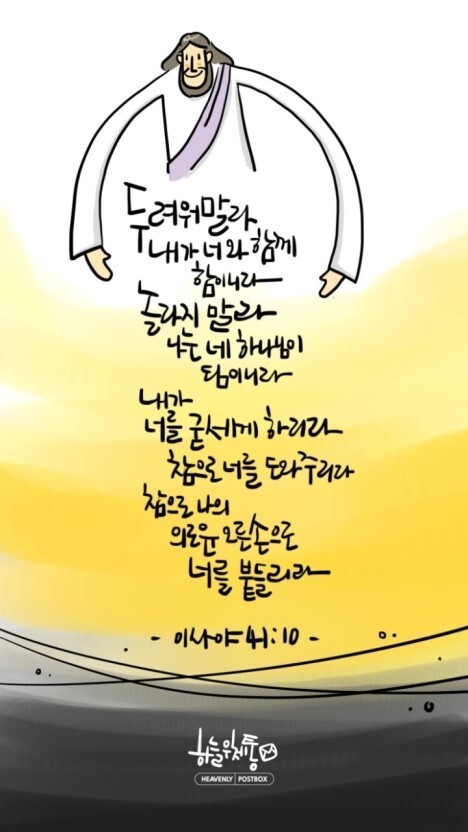 두려워말라
내가 너와 함께
함이니라
놀라지 말라
나는 네 하나님이
됨이니라
내가
너를 굳세게 하리라
참으로 너를 도와주리라
참으로 나의
의로운 오른손으로
너를 붙들리라
- 이사야 41:10 -
하늘우체통
HEAVENLY | POSTBOX